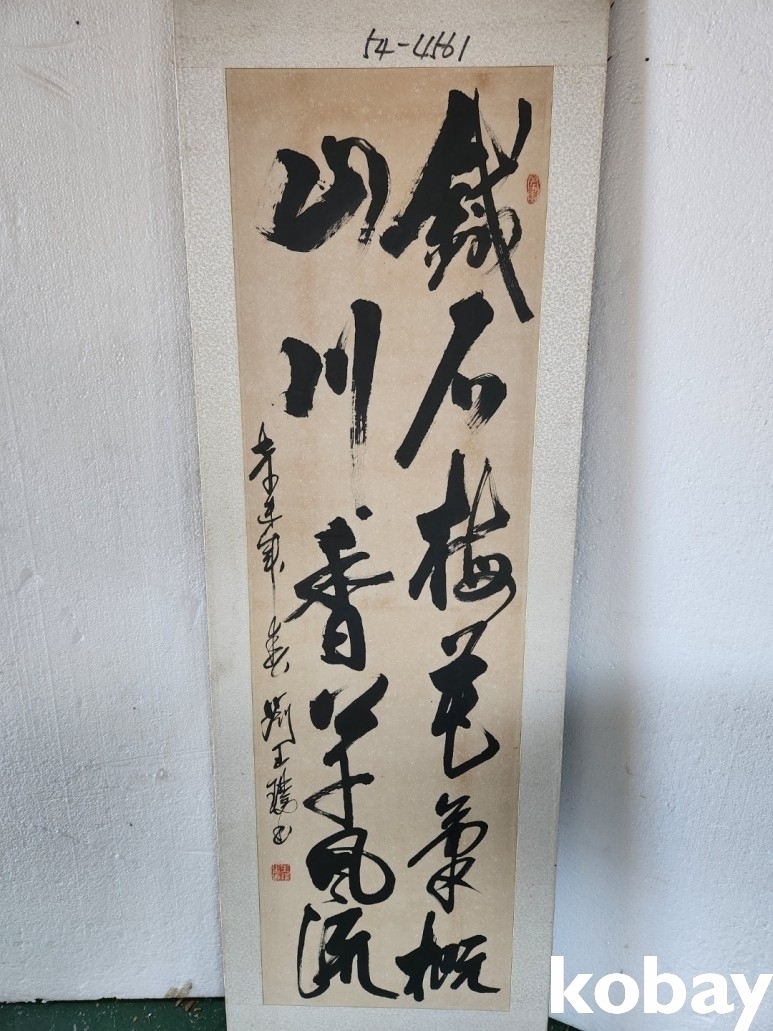 54-4561
鐵石梅花氣概
山川香草風流
春 劉玉璞书
kobay